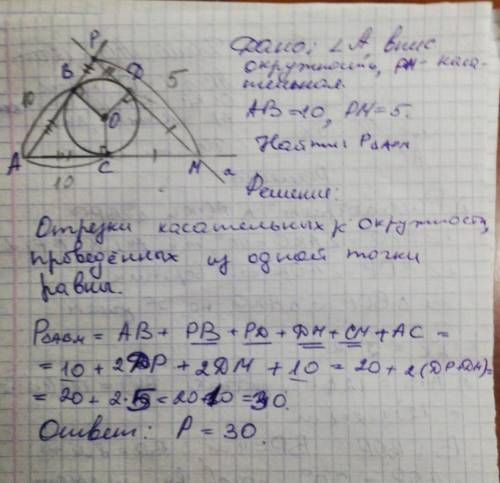 Дано: ∠A, впис
окружность, PM - каса-
тельная
AB = 10, PM = 5.
Найти: P△APM
P
B
D
5
10
O
A
C
M
a
10
Решение:
Отрезки касательных к окружности,
проведённых из одной точки
равны.
P△APM = AB + PB + PD + DM + CM + AC =
= 10 + 2DP + 2DM + 10 = 20 + 2(DP+DM)=
= 20 + 2·5 = 20+10 = 30.
Ответ: P = 30.